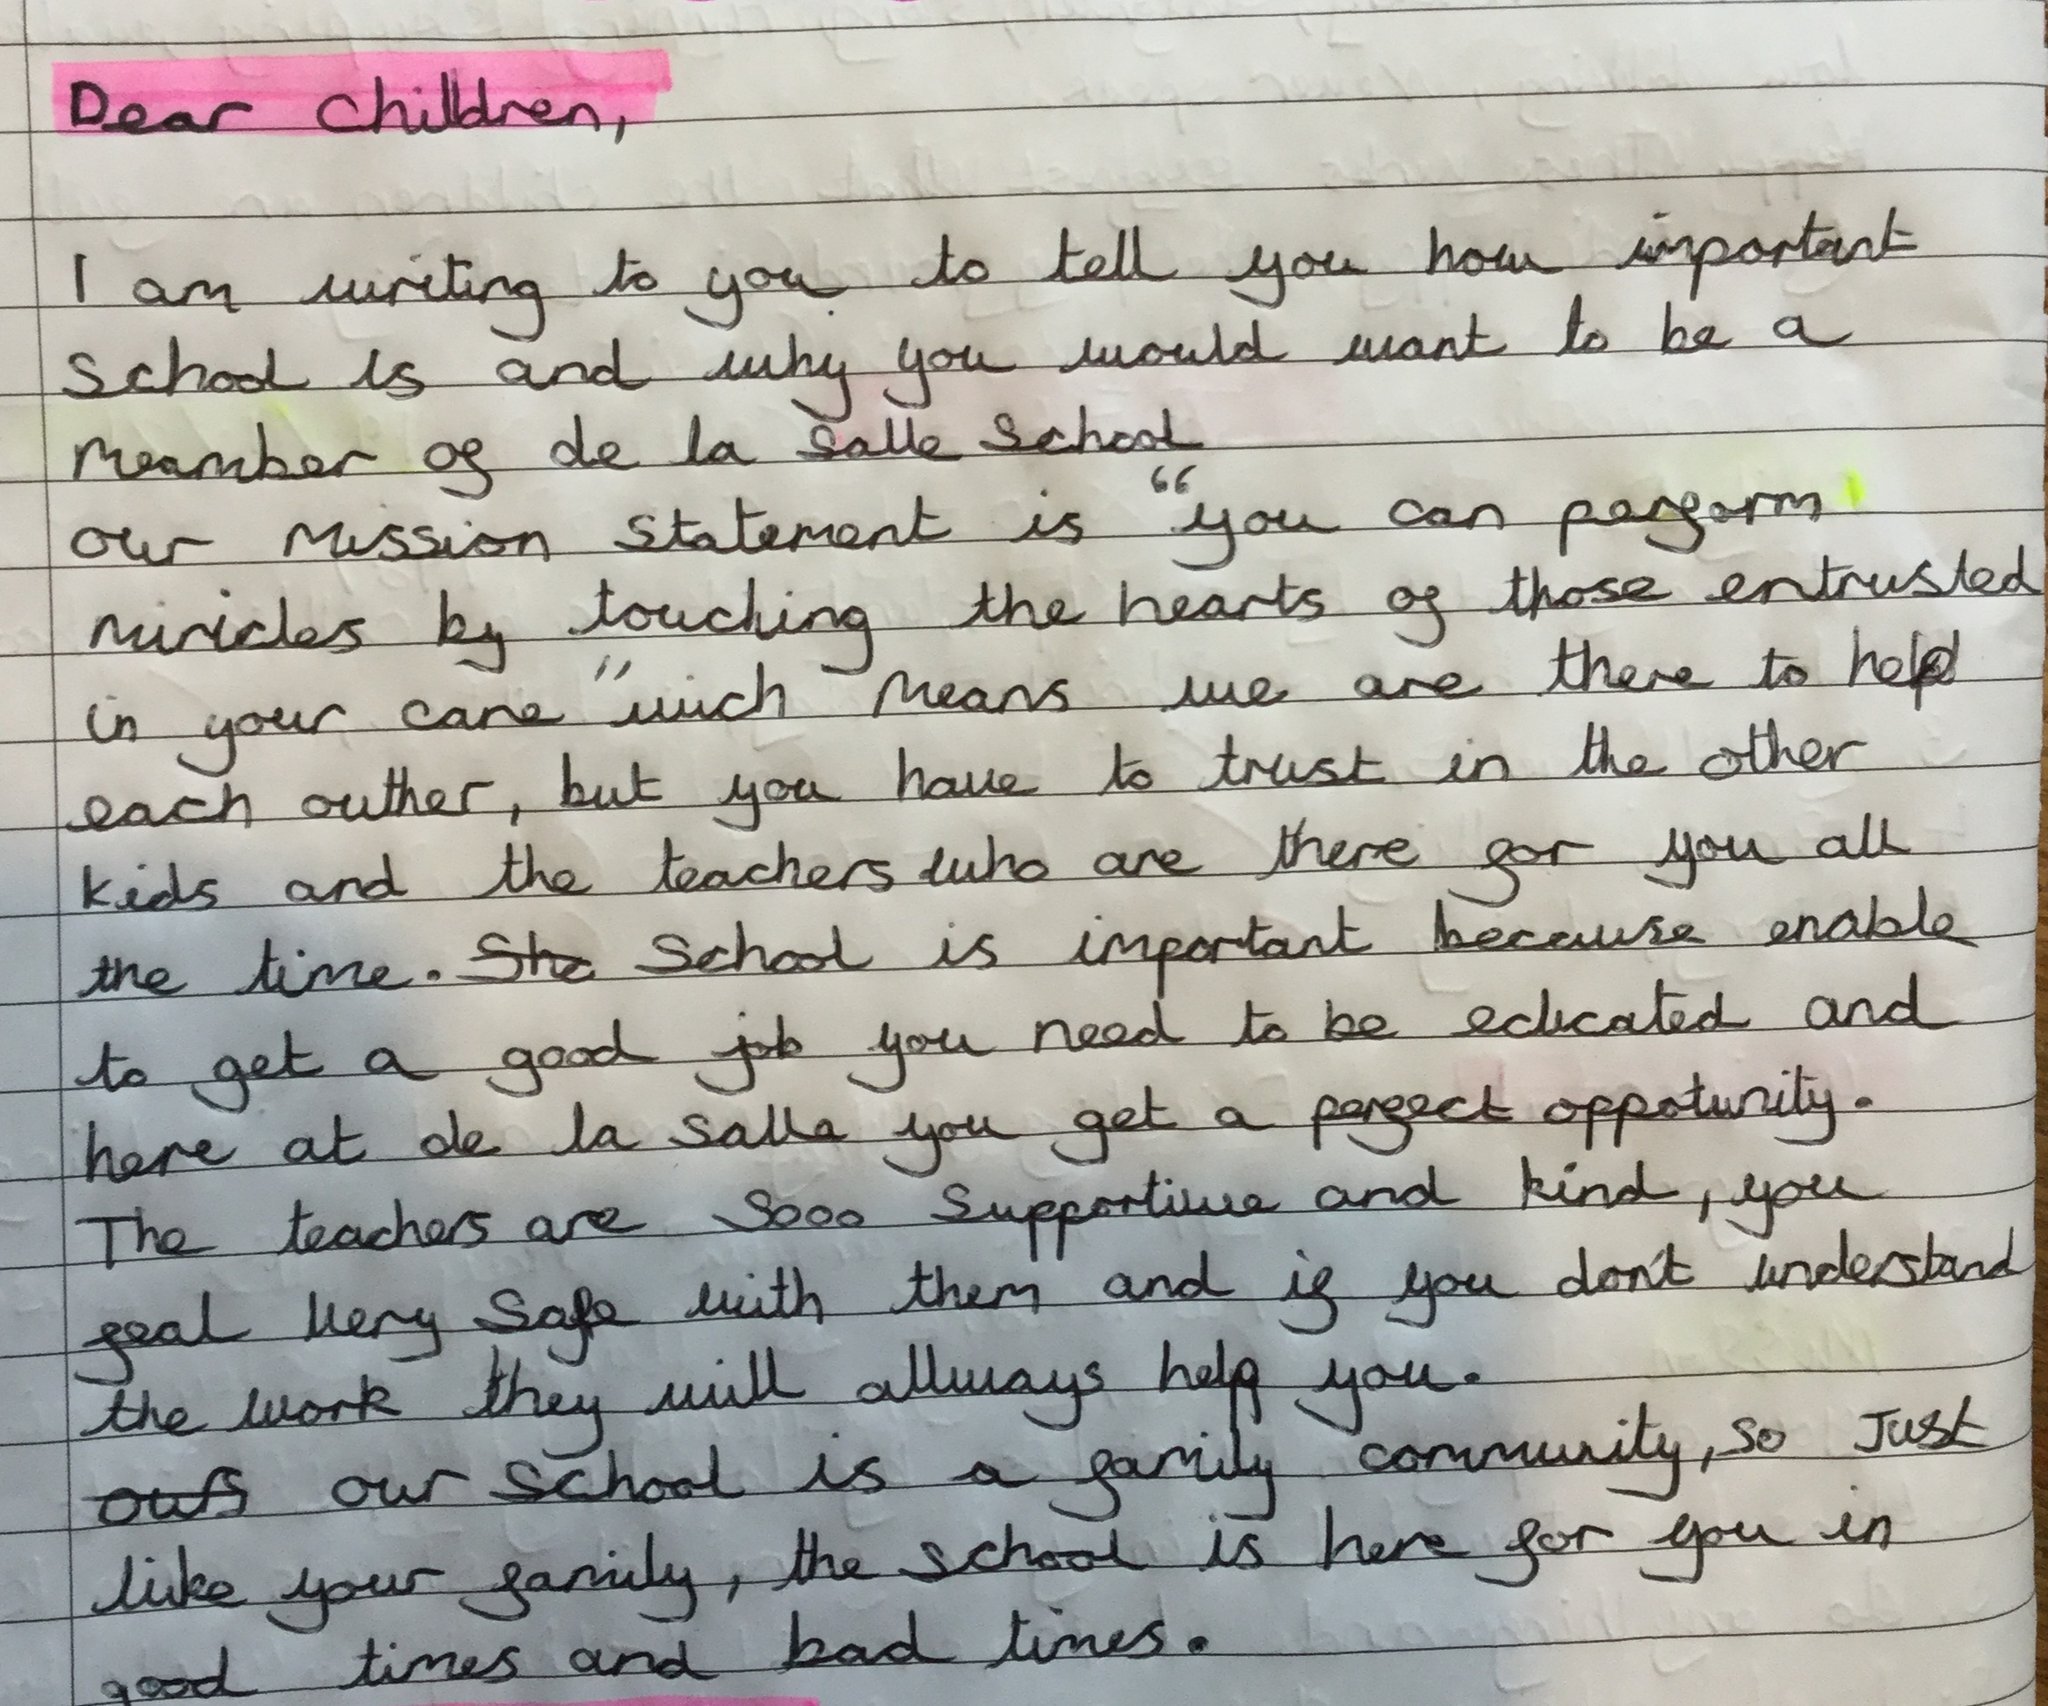 Dear children,
I am writing to you to tell you how important
school is and why you would want to be a
meamber of de la salle school
our mission statement is "you can perform
miricles by touching the hearts of those entrusted
in your care" wich means we are there to help
each outher, but you have to trust in the other
kids and the teachers who are there for you all
the time. She School is important because enable
to get a good job you need to be educated and
here at de la salle you get a perfect oppotunity.
The teachers are sooo supportive and kind, you
feal very safe with them and if you don't understand
the work they will allways help you.
our school is a family community, so Just
like your family, the school is here for you in
good times and bad times.